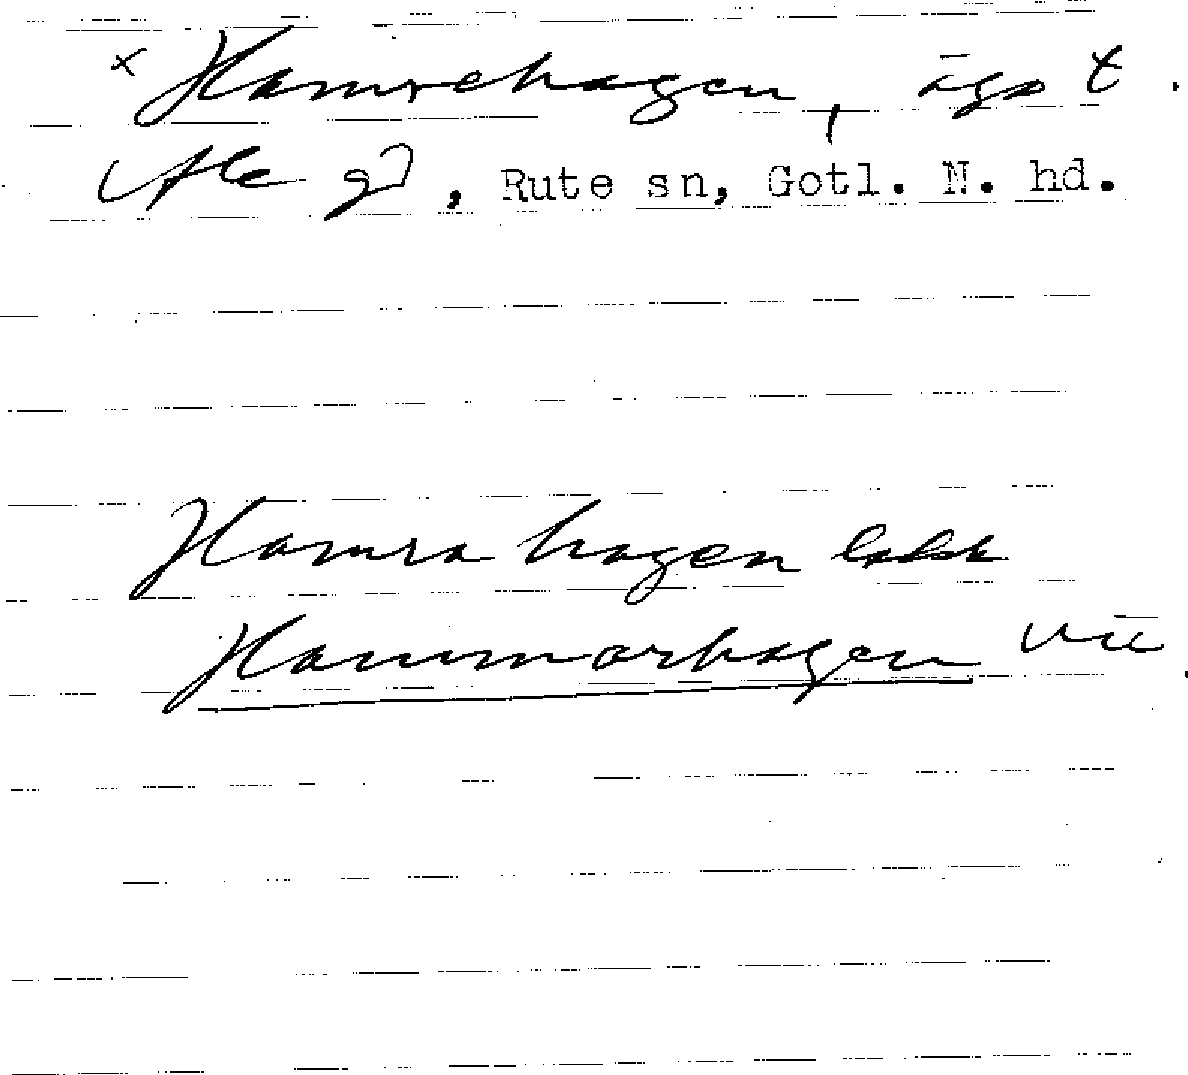 × Hamrehagen, ägo t.
Ale gd, Rute sn, Gotl. N. hd.
Hamra hagen
Hammarhagen